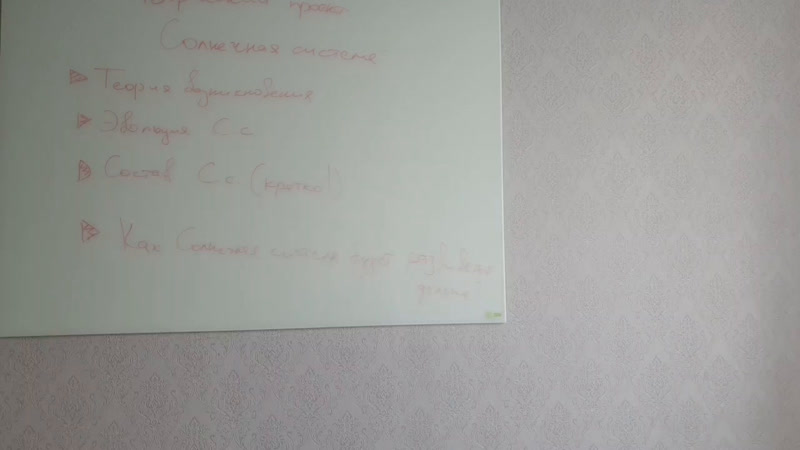 проект
Солнечная система
Теория возникновения
Эволюция С.с
Состав С.с. (кратко!)
Как Солнечная система будет развиваться
дальше